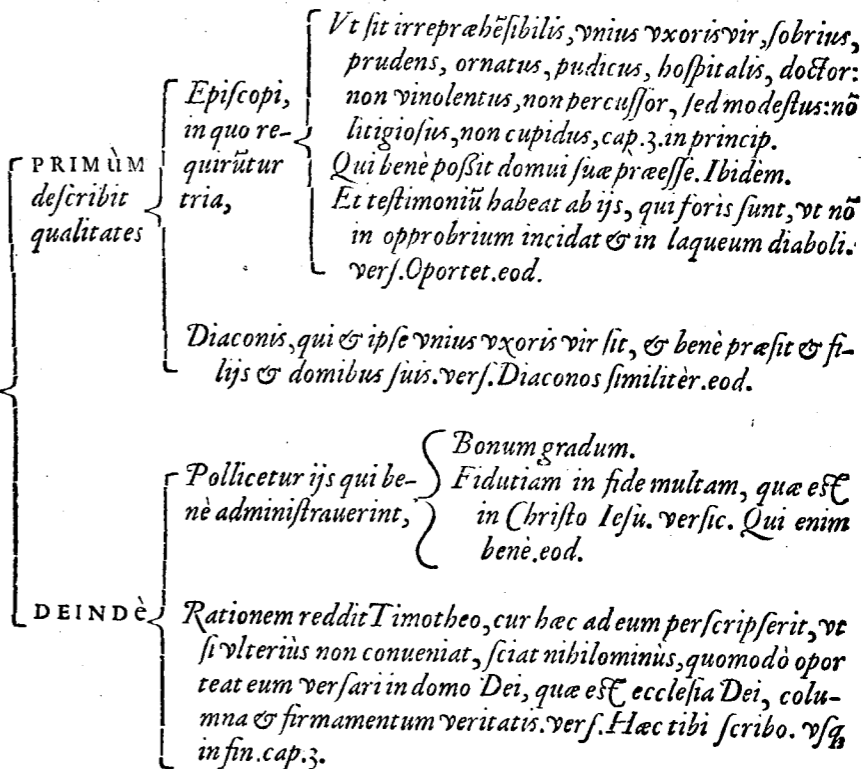 PRIMÙM
describit
qualitates
Episcopi,
in quo re-
quirũtur
tria,
Vt sit irrepræhẽsibilis, vnius vxoris vir, sobrius,
prudens, ornatus, pudicus, hospitalis, doctor:
non vinolentus, non percussor, sed modestus: nõ
litigiosus, non cupidus, cap.3. in princip.
Qui benè poßit domui suæ præesse. Ibidèm.
Et testimoniũ habeat ab ijs, qui foris sunt, vt nõ
in opprobrium incidat & in laqueum diaboli.
vers. Oportet. eod.
Diaconis, qui & ipse vnius vxoris vir sit, & benè præsit & fi-
lijs & domibus suis. vers. Diaconos similitèr. eod.
DEINDÈ
Pollicetur ijs qui be-
nè administrauerint,
Bonum gradum.
Fidutiam in fide multam, quæ est
in Christo Iesu. versic. Qui enim
benè. eod.
Rationem reddit Timotheo, cur hæc ad eum perscripserit, vt
si vlteriùs non conueniat, sciat nihilominùs, quomodò opor
teat eum versari in domo Dei, quæ est ecclesia Dei, colu-
mna & firmamentum veritatis. vers. Hæc tibi scribo. vsq;
in fin. cap.3.